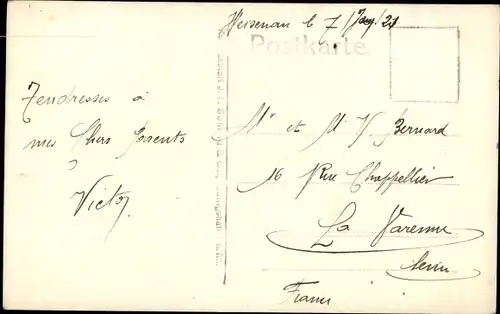 Weisenau le 7
Postkarte
Tendresses à
mes Chers Parents
Victor
Mr et Me V. Bernard
16 Rue Chappellier
La Varenne
Seine
France